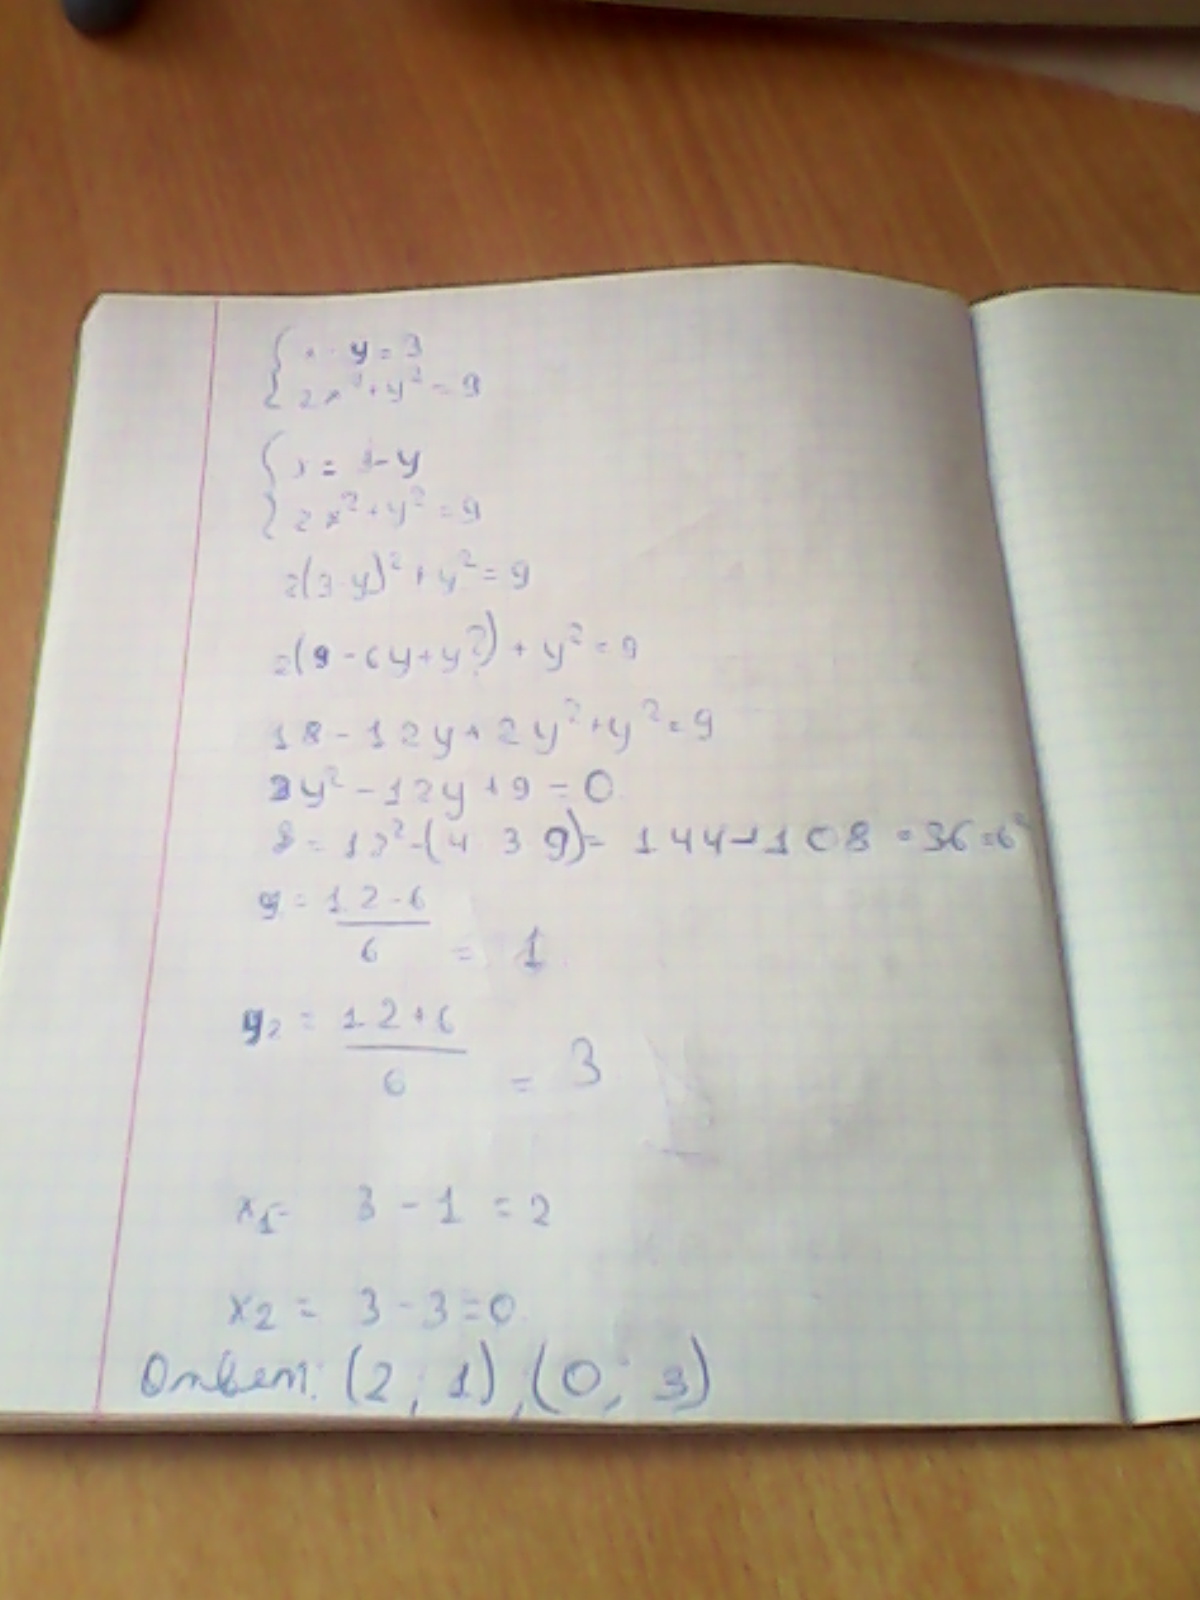 { x + y = 3
2x² + y² = 9
{ x = 3 - y
2x² + y² = 9
2(3-y)² + y² = 9
2(9 - 6y + y²) + y² = 9
18 - 12y + 2y² + y² = 9
3y² - 12y + 9 = 0
D = 12² - (4 · 3 · 9) = 144 - 108 = 36 = 6²
y₁ = 12 - 6 / 6 = 1
y₂ = 12 + 6 / 6 = 3
x₁ = 3 - 1 = 2
x₂ = 3 - 3 = 0
Ответ: (2; 1), (0; 3)